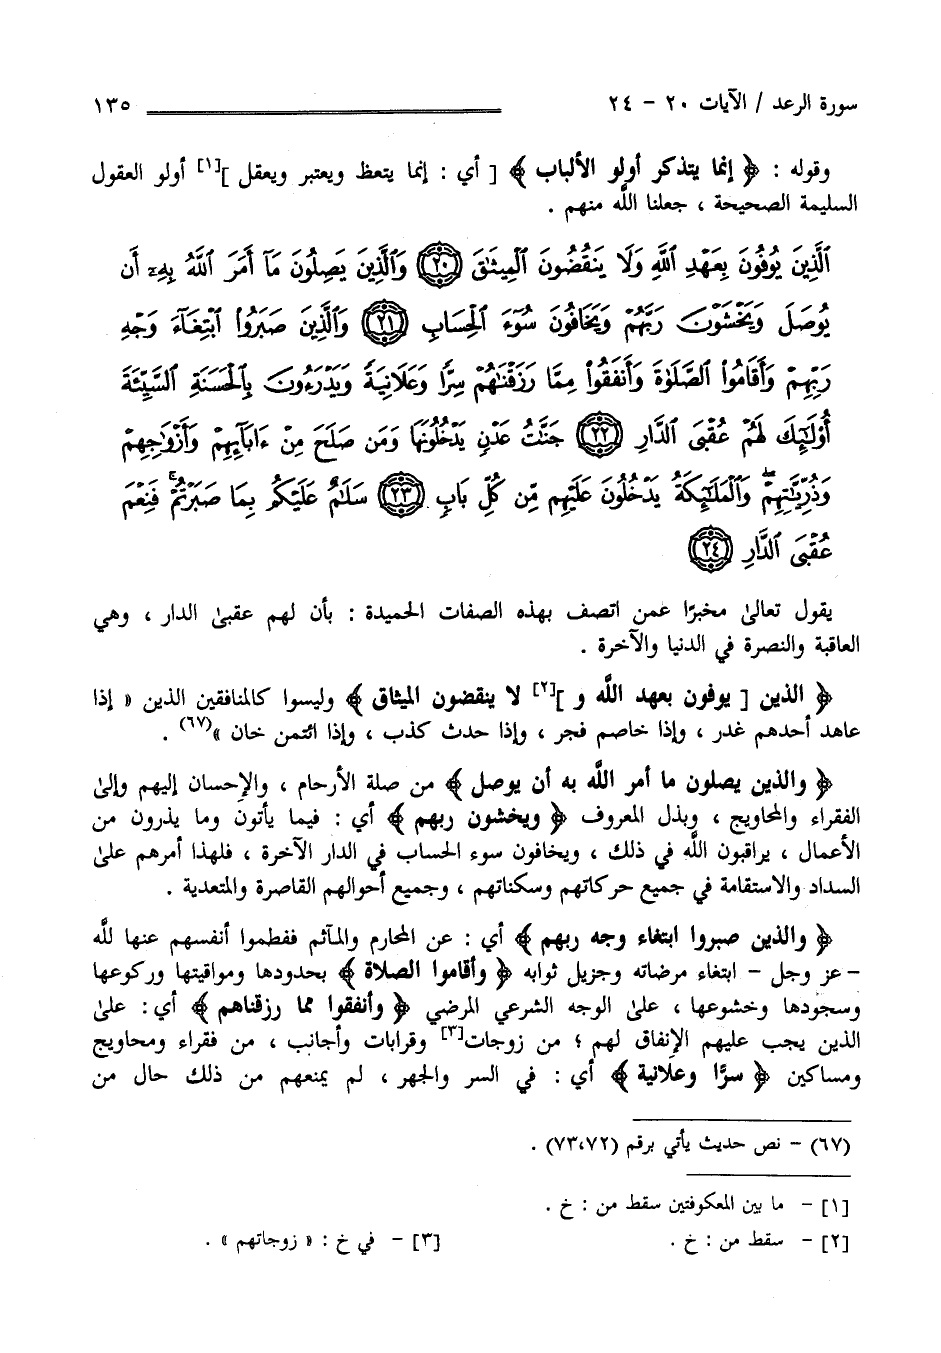 سورة الرعد / الآيات ٢٠ - ٢٤ ١٣٥
وقوله : ﴿ إنما يتذكر أولو الألباب ﴾ [ أي : إنما يتعظ ويعتبر ويعقل ][١] أولو العقول
السليمة الصحيحة ، جعلنا اللَّه منهم .
ٱلَّذِينَ يُوفُونَ بِعَهْدِ ٱللَّهِ وَلَا يَنقُضُونَ ٱلْمِيثَٰقَ ﴿٢٠﴾ وَٱلَّذِينَ يَصِلُونَ مَآ أَمَرَ ٱللَّهُ بِهِۦٓ أَن
يُوصَلَ وَيَخْشَوْنَ رَبَّهُمْ وَيَخَافُونَ سُوٓءَ ٱلْحِسَابِ ﴿٢١﴾ وَٱلَّذِينَ صَبَرُوا۟ ٱبْتِغَآءَ وَجْهِ
رَبِّهِمْ وَأَقَامُوا۟ ٱلصَّلَوٰةَ وَأَنفَقُوا۟ مِمَّا رَزَقْنَٰهُمْ سِرًّا وَعَلَانِيَةً وَيَدْرَءُونَ بِٱلْحَسَنَةِ ٱلسَّيِّئَةَ
أُو۟لَٰٓئِكَ لَهُمْ عُقْبَى ٱلدَّارِ ﴿٢٢﴾ جَنَّٰتُ عَدْنٍ يَدْخُلُونَهَا وَمَن صَلَحَ مِنْ ءَابَآئِهِمْ وَأَزْوَٰجِهِمْ
وَذُرِّيَّٰتِهِمْ ۖ وَٱلْمَلَٰٓئِكَةُ يَدْخُلُونَ عَلَيْهِم مِّن كُلِّ بَابٍ ﴿٢٣﴾ سَلَٰمٌ عَلَيْكُم بِمَا صَبَرْتُمْ ۚ فَنِعْمَ
عُقْبَى ٱلدَّارِ ﴿٢٤﴾
يقول تعالىٰ مخبرًا عمن اتصف بهذه الصفات الحميدة : بأن لهم عقبىٰ الدار ، وهي
العاقبة والنصرة في الدنيا والآخرة .
﴿ الذين [ يوفون بعهد اللَّه و ][٢] لا ينقضون الميثاق ﴾ وليسوا كالمنافقين الذين « إذا
عاهد أحدهم غدر ، وإذا خاصم فجر ، وإذا حدث كذب ، وإذا ائتمن خان »(٦٧) .
﴿ والذين يصلون ما أمر اللَّه به أن يوصل ﴾ من صلة الأرحام ، والإحسان إليهم وإلىٰ
الفقراء والمحاويج ، وبذل المعروف ﴿ ويخشون ربهم ﴾ أي : فيما يأتون وما يذرون من
الأعمال ، يراقبون اللَّه في ذلك ، ويخافون سوء الحساب في الدار الآخرة ، فلهذا أمرهم علىٰ
السداد والاستقامة في جميع حركاتهم وسكناتهم ، وجميع أحوالهم القاصرة والمتعدية .
﴿ والذين صبروا ابتغاء وجه ربهم ﴾ أي : عن المحارم والمآثم ففطموا أنفسهم عنها للَّه
- عز وجل - ابتغاء مرضاته وجزيل ثوابه ﴿ وأقاموا الصلاة ﴾ بحدودها ومواقيتها وركوعها
وسجودها وخشوعها ، علىٰ الوجه الشرعي المرضي ﴿ وأنفقوا مما رزقناهم ﴾ أي : علىٰ
الذين يجب عليهم الإنفاق لهم ؛ من زوجات[٣] وقرابات وأجانب ، من فقراء ومحاويج
ومساكين ﴿ سرًّا وعلانية ﴾ أي : في السر والجهر ، لم يمنعهم من ذلك حال من
(٦٧) - نص حديث يأتي برقم (٧٣،٧٢) .
[١] - ما بين المعكوفتين سقط من : خ .
[٢] - سقط من : خ . [٣] - في خ : « زوجاتهم » .